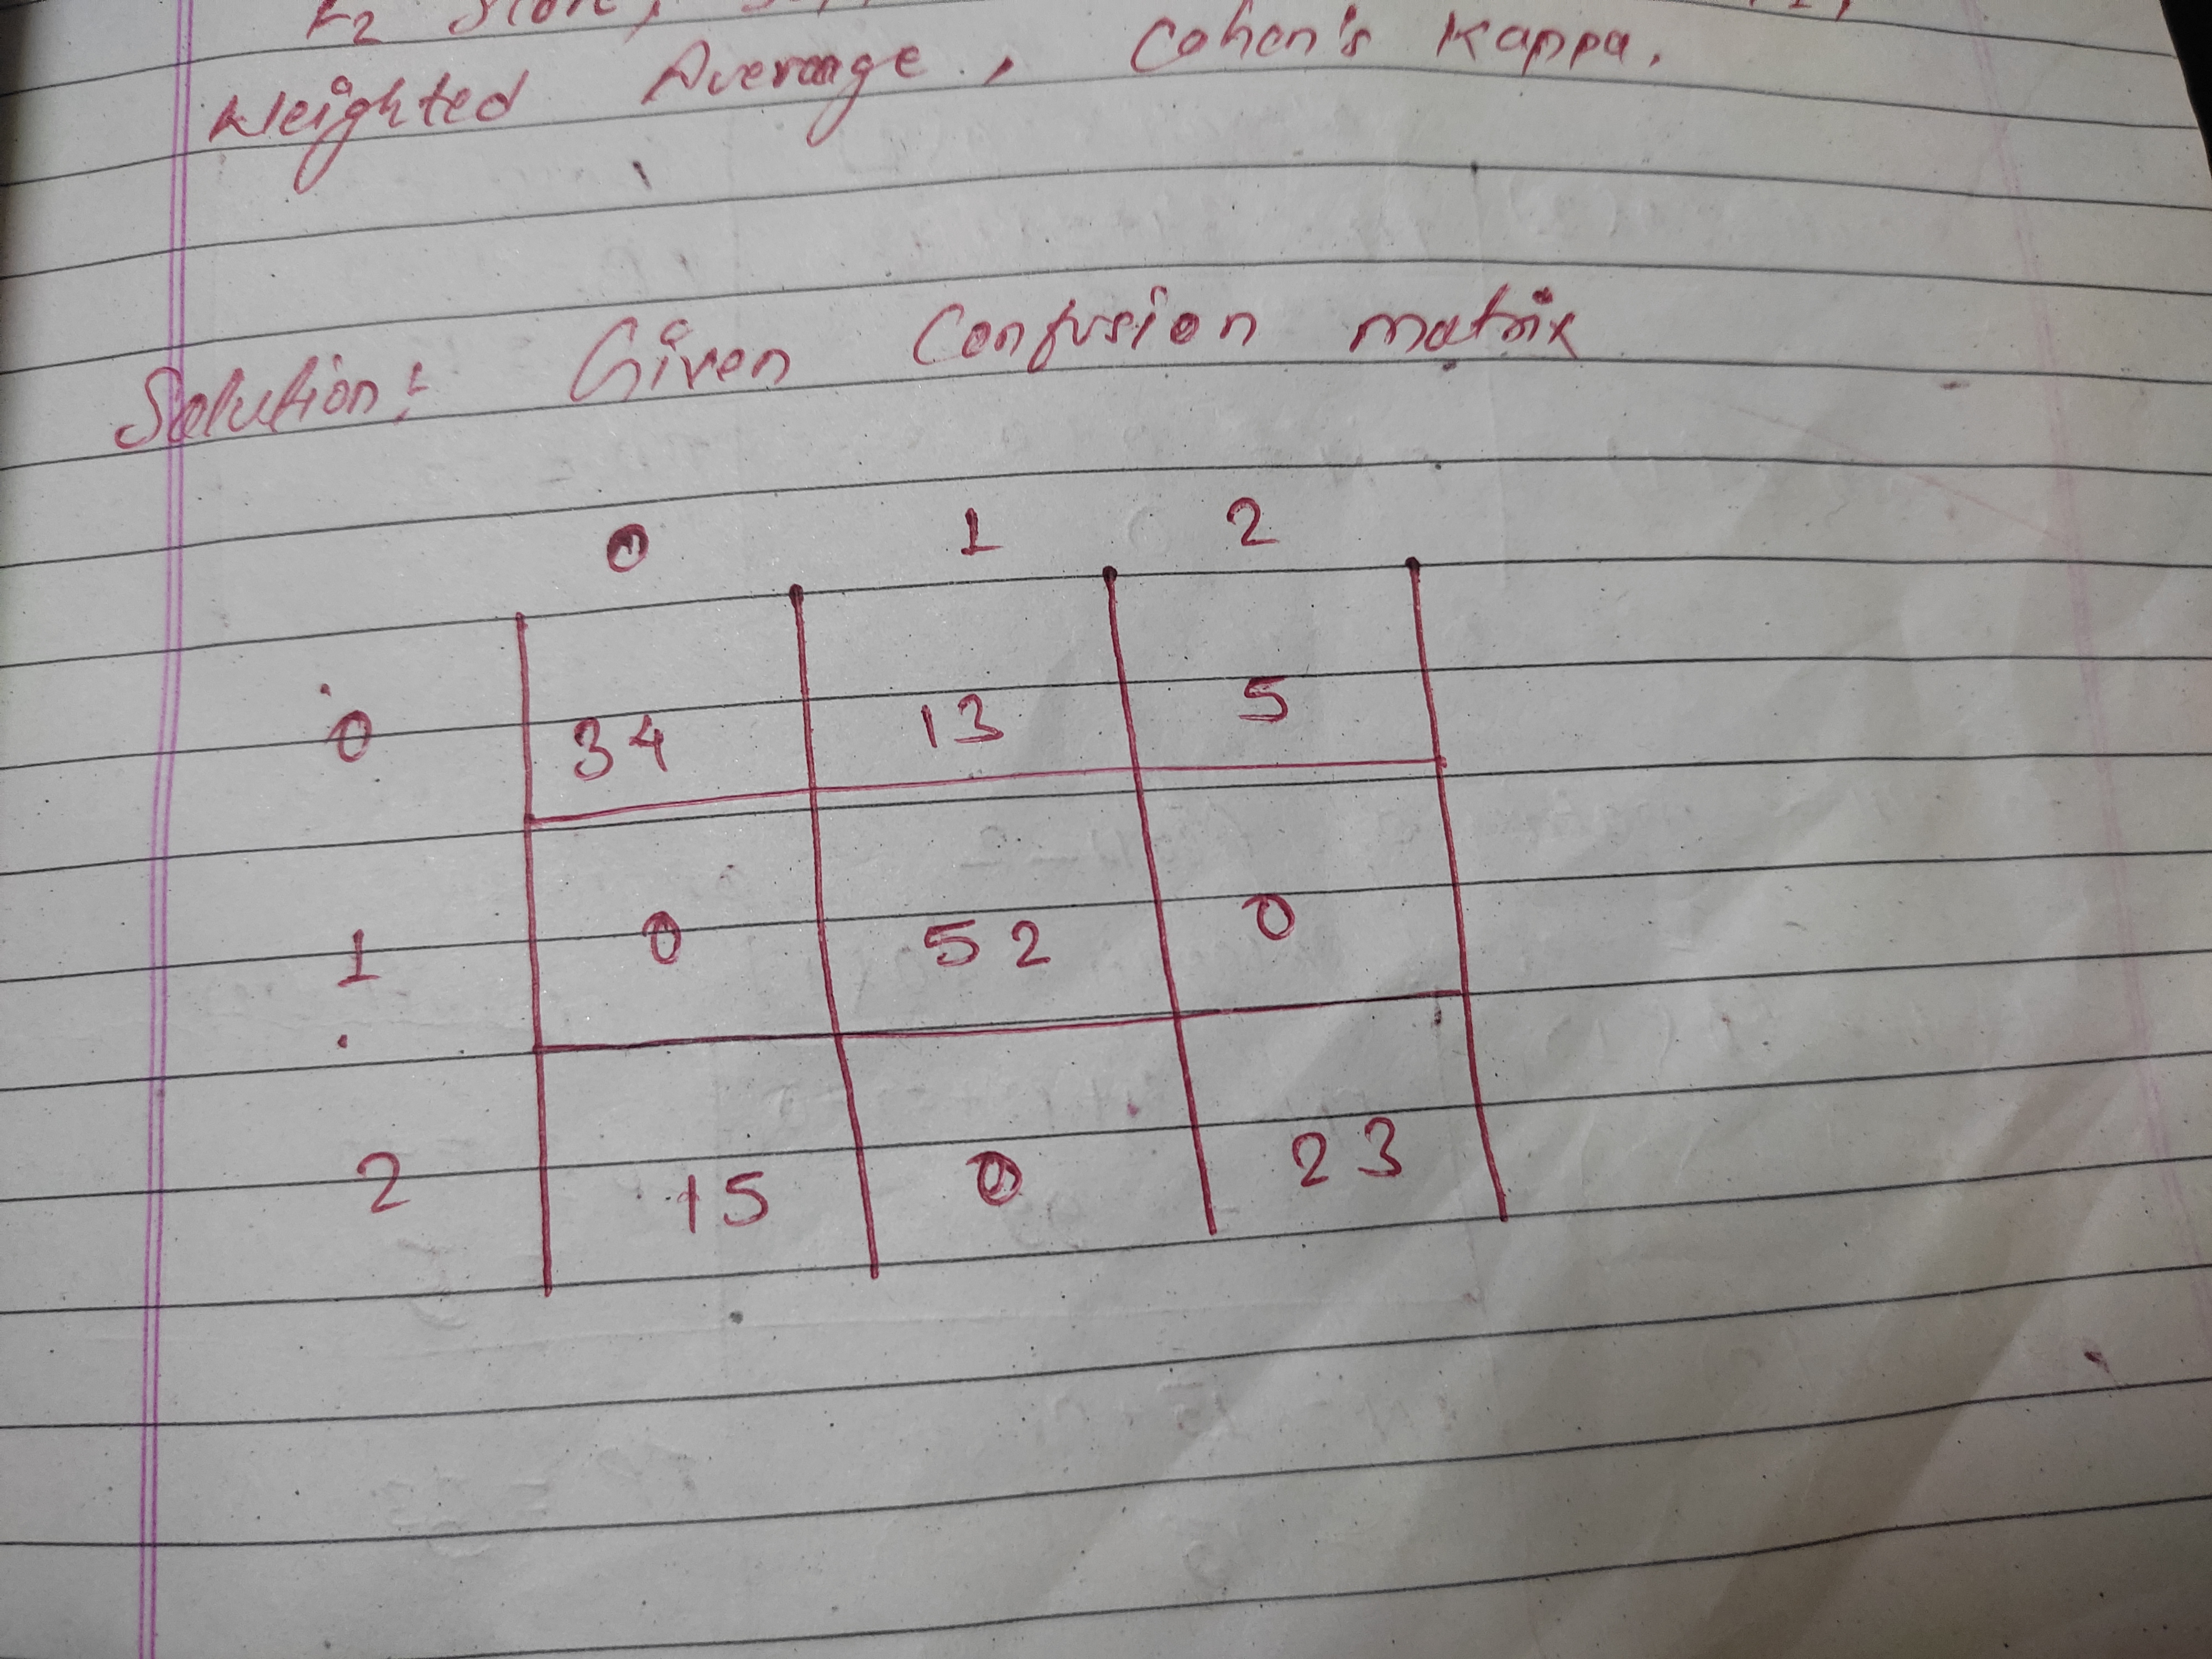 F2 Score,
Weighted Average, Cohen's Kappa.
Solution: Given Confusion matrix
0 1 2
0 34 13 5
1 0 52 0
2 15 0 23